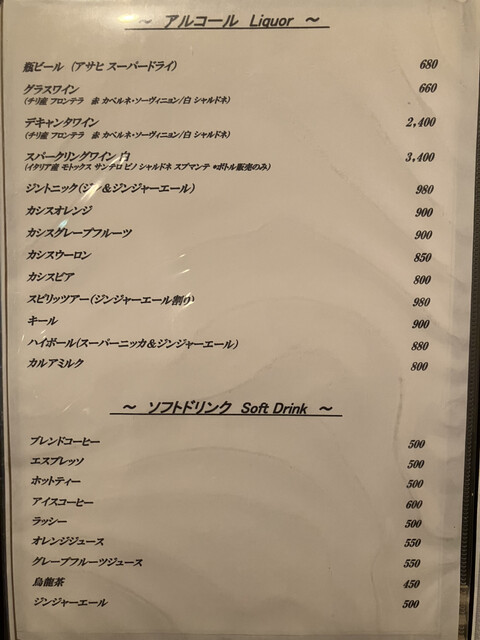 ～ アルコール Liquor ～
瓶ビール (アサヒ スーパードライ) 680
グラスワイン 660
(チリ産 フロンテラ 赤 カベルネ・ソーヴィニョン/白 シャルドネ)
デキャンタワイン 2,400
(チリ産 フロンテラ 赤 カベルネ・ソーヴィニョン/白 シャルドネ)
スパークリングワイン 白 3,400
(イタリア産 モトックス サンテロ ピノ シャルドネ スプマンテ *ボトル販売のみ)
ジントニック(ジン&ジンジャーエール) 980
カシスオレンジ 900
カシスグレープフルーツ 900
カシスウーロン 850
カシスビア 800
スピリッツアー(ジンジャーエール割り) 980
キール 900
ハイボール(スーパーニッカ&ジンジャーエール) 880
カルアミルク 800
～ ソフトドリンク Soft Drink ～
ブレンドコーヒー 500
エスプレッソ 500
ホットティー 500
アイスコーヒー 600
ラッシー 500
オレンジジュース 550
グレープフルーツジュース 550
烏龍茶 450
ジンジャーエール 500